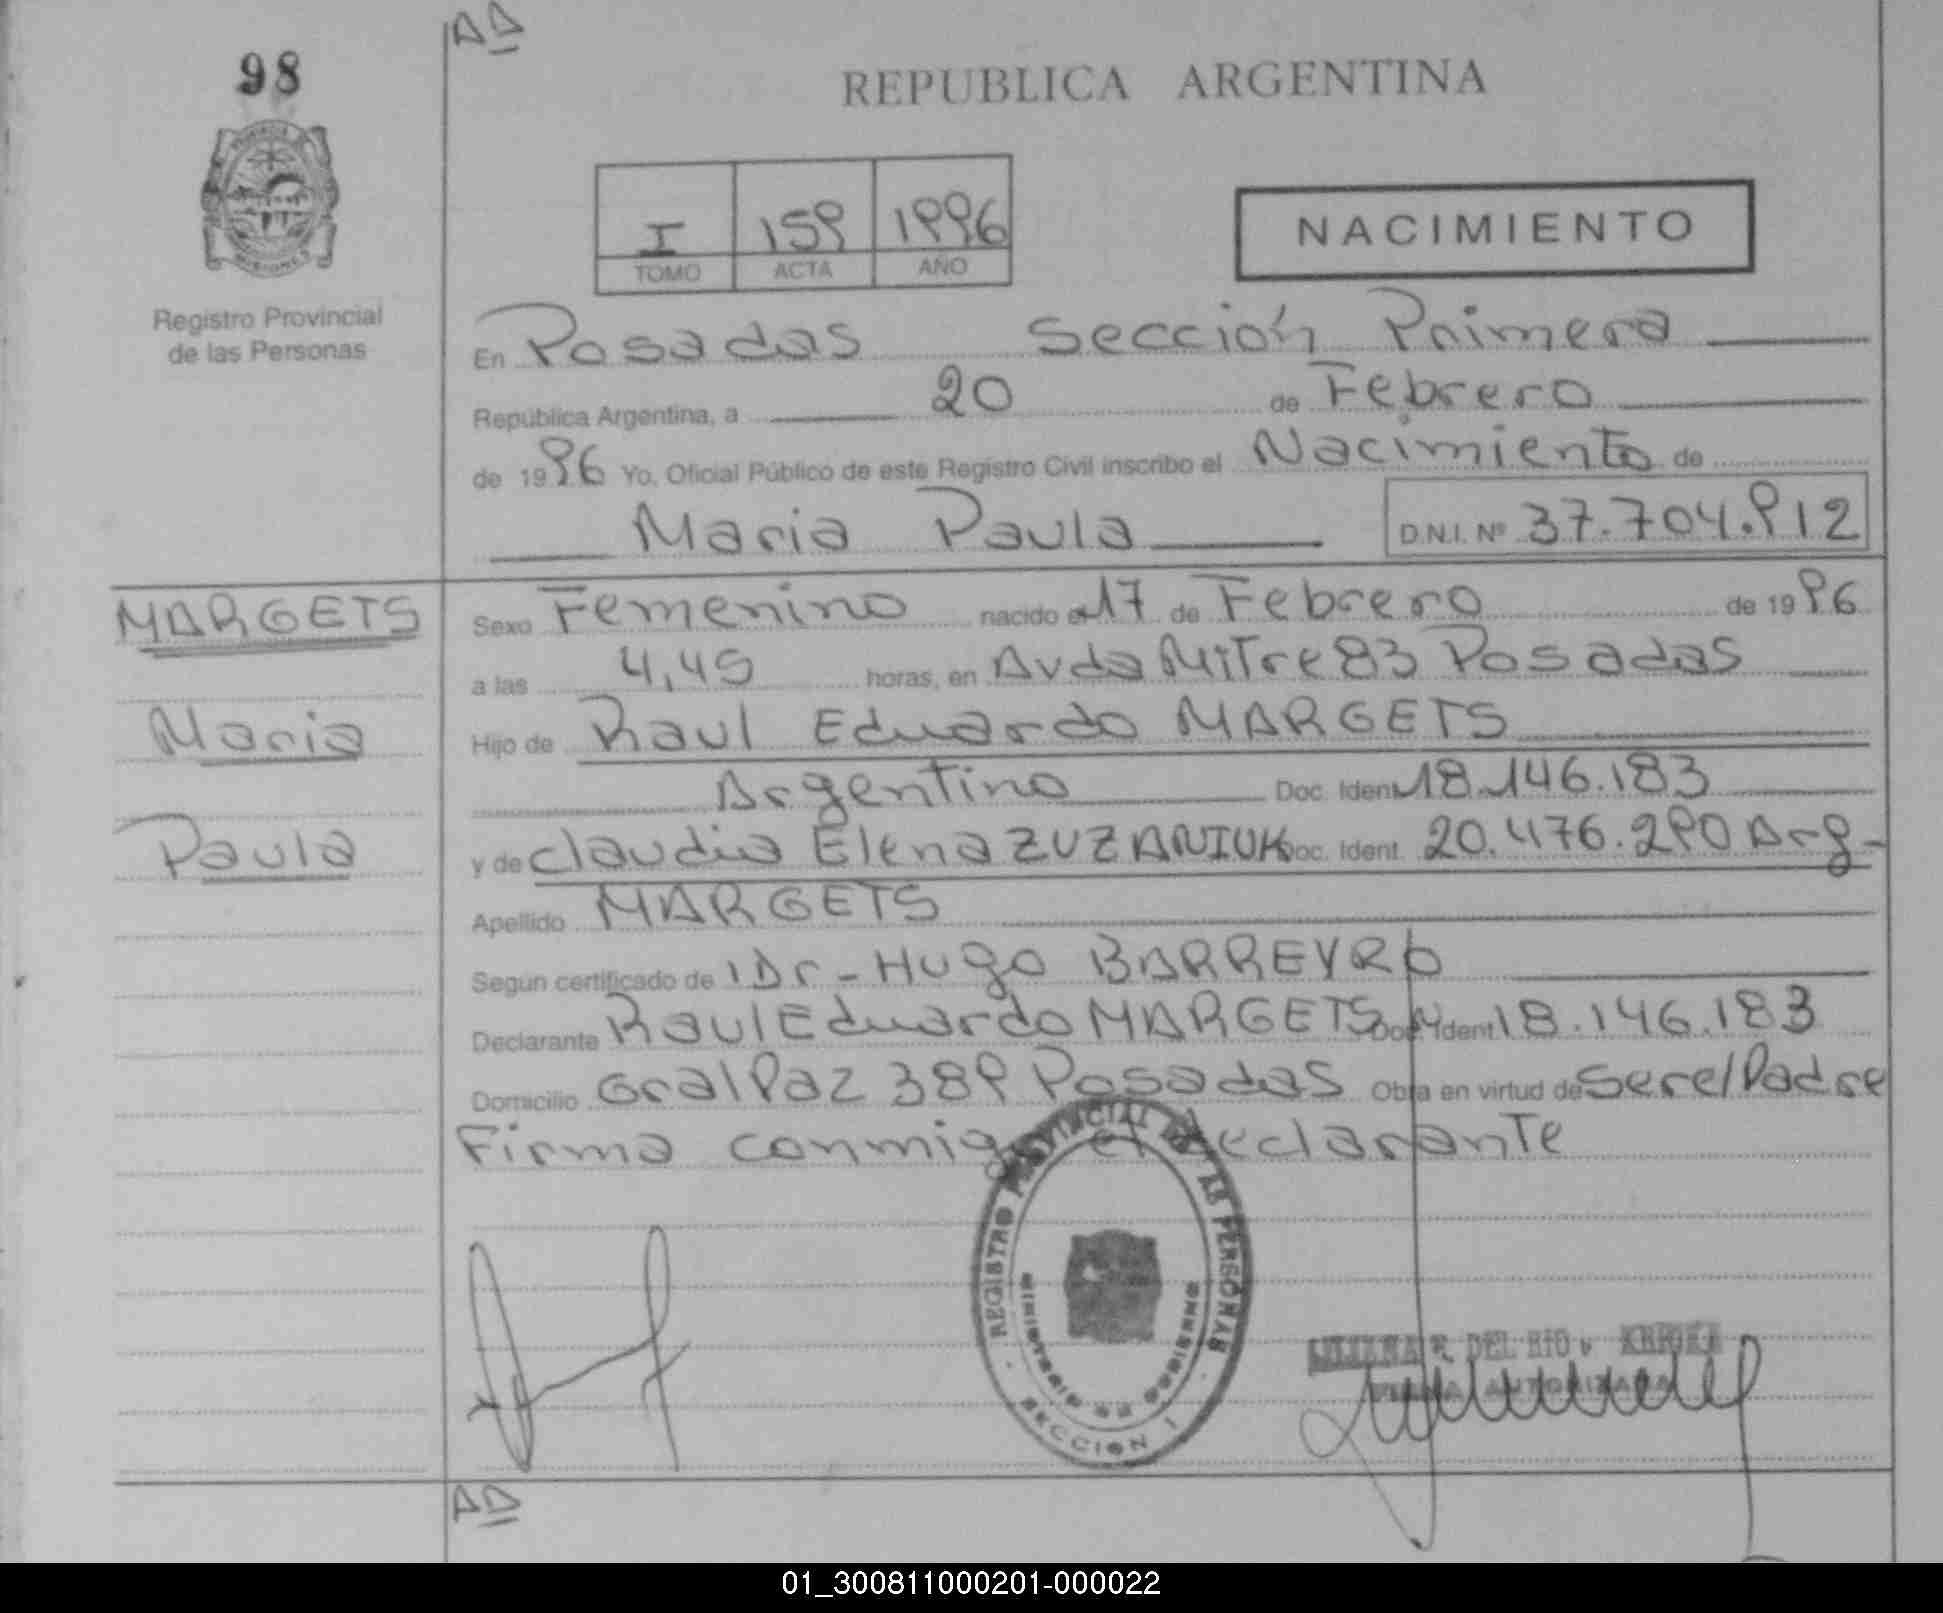 AD
98
REPUBLICA ARGENTINA
I 159 1996
TOMO ACTA AÑO
NACIMIENTO
Registro Provincial
de las Personas
En Posadas Sección Primera
República Argentina, a 20 de Febrero
de 1996 Yo, Oficial Público de este Registro Civil inscribo el Nacimiento de
Maria Paula D.N.I. Nº 37.704.912
MARGETS
Maria
Paula
Sexo Femenino nacido el 17 de Febrero de 1996
a las 4,45 horas, en Avda Mitre 83 Posadas
Hijo de Raul Eduardo MARGETS
Argentino Doc. Ident. 18.146.183
y de Claudia Elena ZUZANIUK Doc. Ident. 20.476.290 Arg-
Apellido MARGETS
Según certificado de Dr-Hugo BARREYRO
Declarante Raul Eduardo MARGETS Doc. Ident 18.146.183
Domicilio Gral Paz 389 Posadas Obra en virtud de Ser el Padre
Firma conmigo el declarante
REGISTRO PROVINCIAL DE LAS PERSONAS
MINISTERIO DE GOBIERNO
SECCION 1
DEL RIO
FIRMA AUTORIZADA
AD
01_300811000201-000022